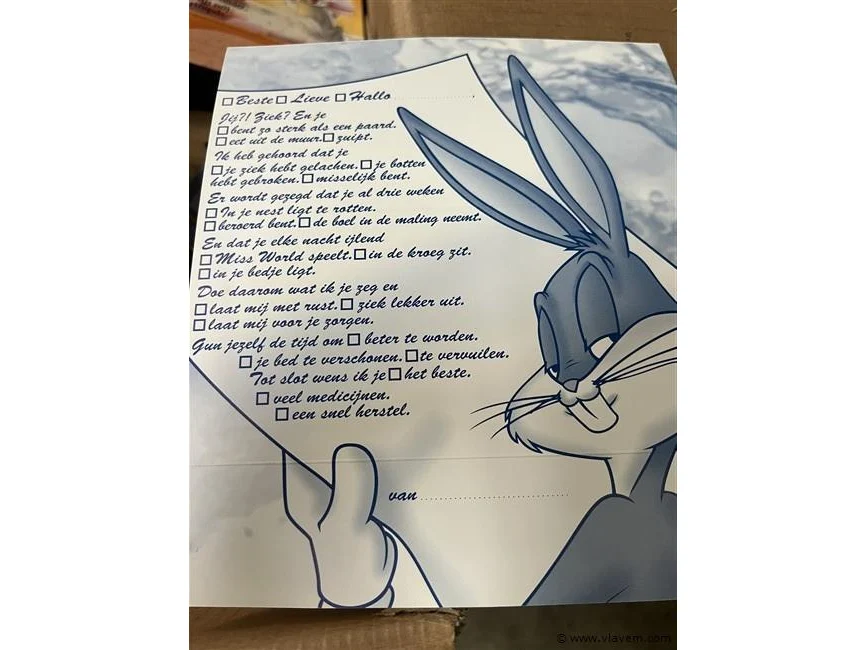 ☐ Beste ☐ Lieve ☐ Hallo....................
Jij?! Ziek? En je
☐ bent zo sterk als een paard.
☐ eet uit de muur. ☐ zuipt.
Ik heb gehoord dat je
☐ je ziek hebt gelachen. ☐ je botten
hebt gebroken. ☐ misselijk bent.
Er wordt gezegd dat je al drie weken
☐ In je nest ligt te rotten.
☐ beroerd bent. ☐ de boel in de maling neemt.
En dat je elke nacht ijlend
☐ Miss World speelt. ☐ in de kroeg zit.
☐ in je bedje ligt.
Doe daarom wat ik je zeg en
☐ laat mij met rust. ☐ ziek lekker uit.
☐ laat mij voor je zorgen.
Gun jezelf de tijd om ☐ beter te worden.
☐ je bed te verschonen. ☐ te vervuilen.
Tot slot wens ik je ☐ het beste.
☐ veel medicijnen.
☐ een snel herstel.
van..............................
© www.vlavem.com